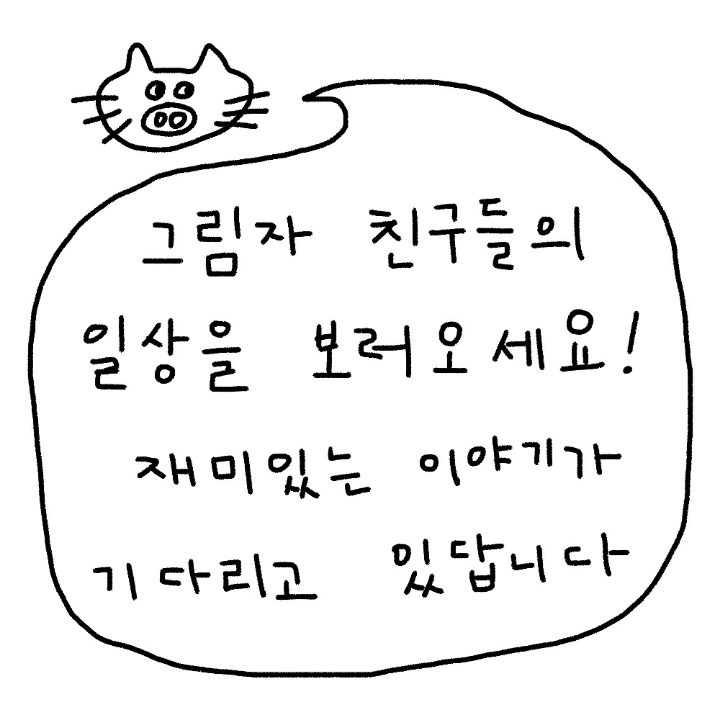 그림자 친구들의
일상을 보러오세요!
재미있는 이야기가
기다리고 있답니다